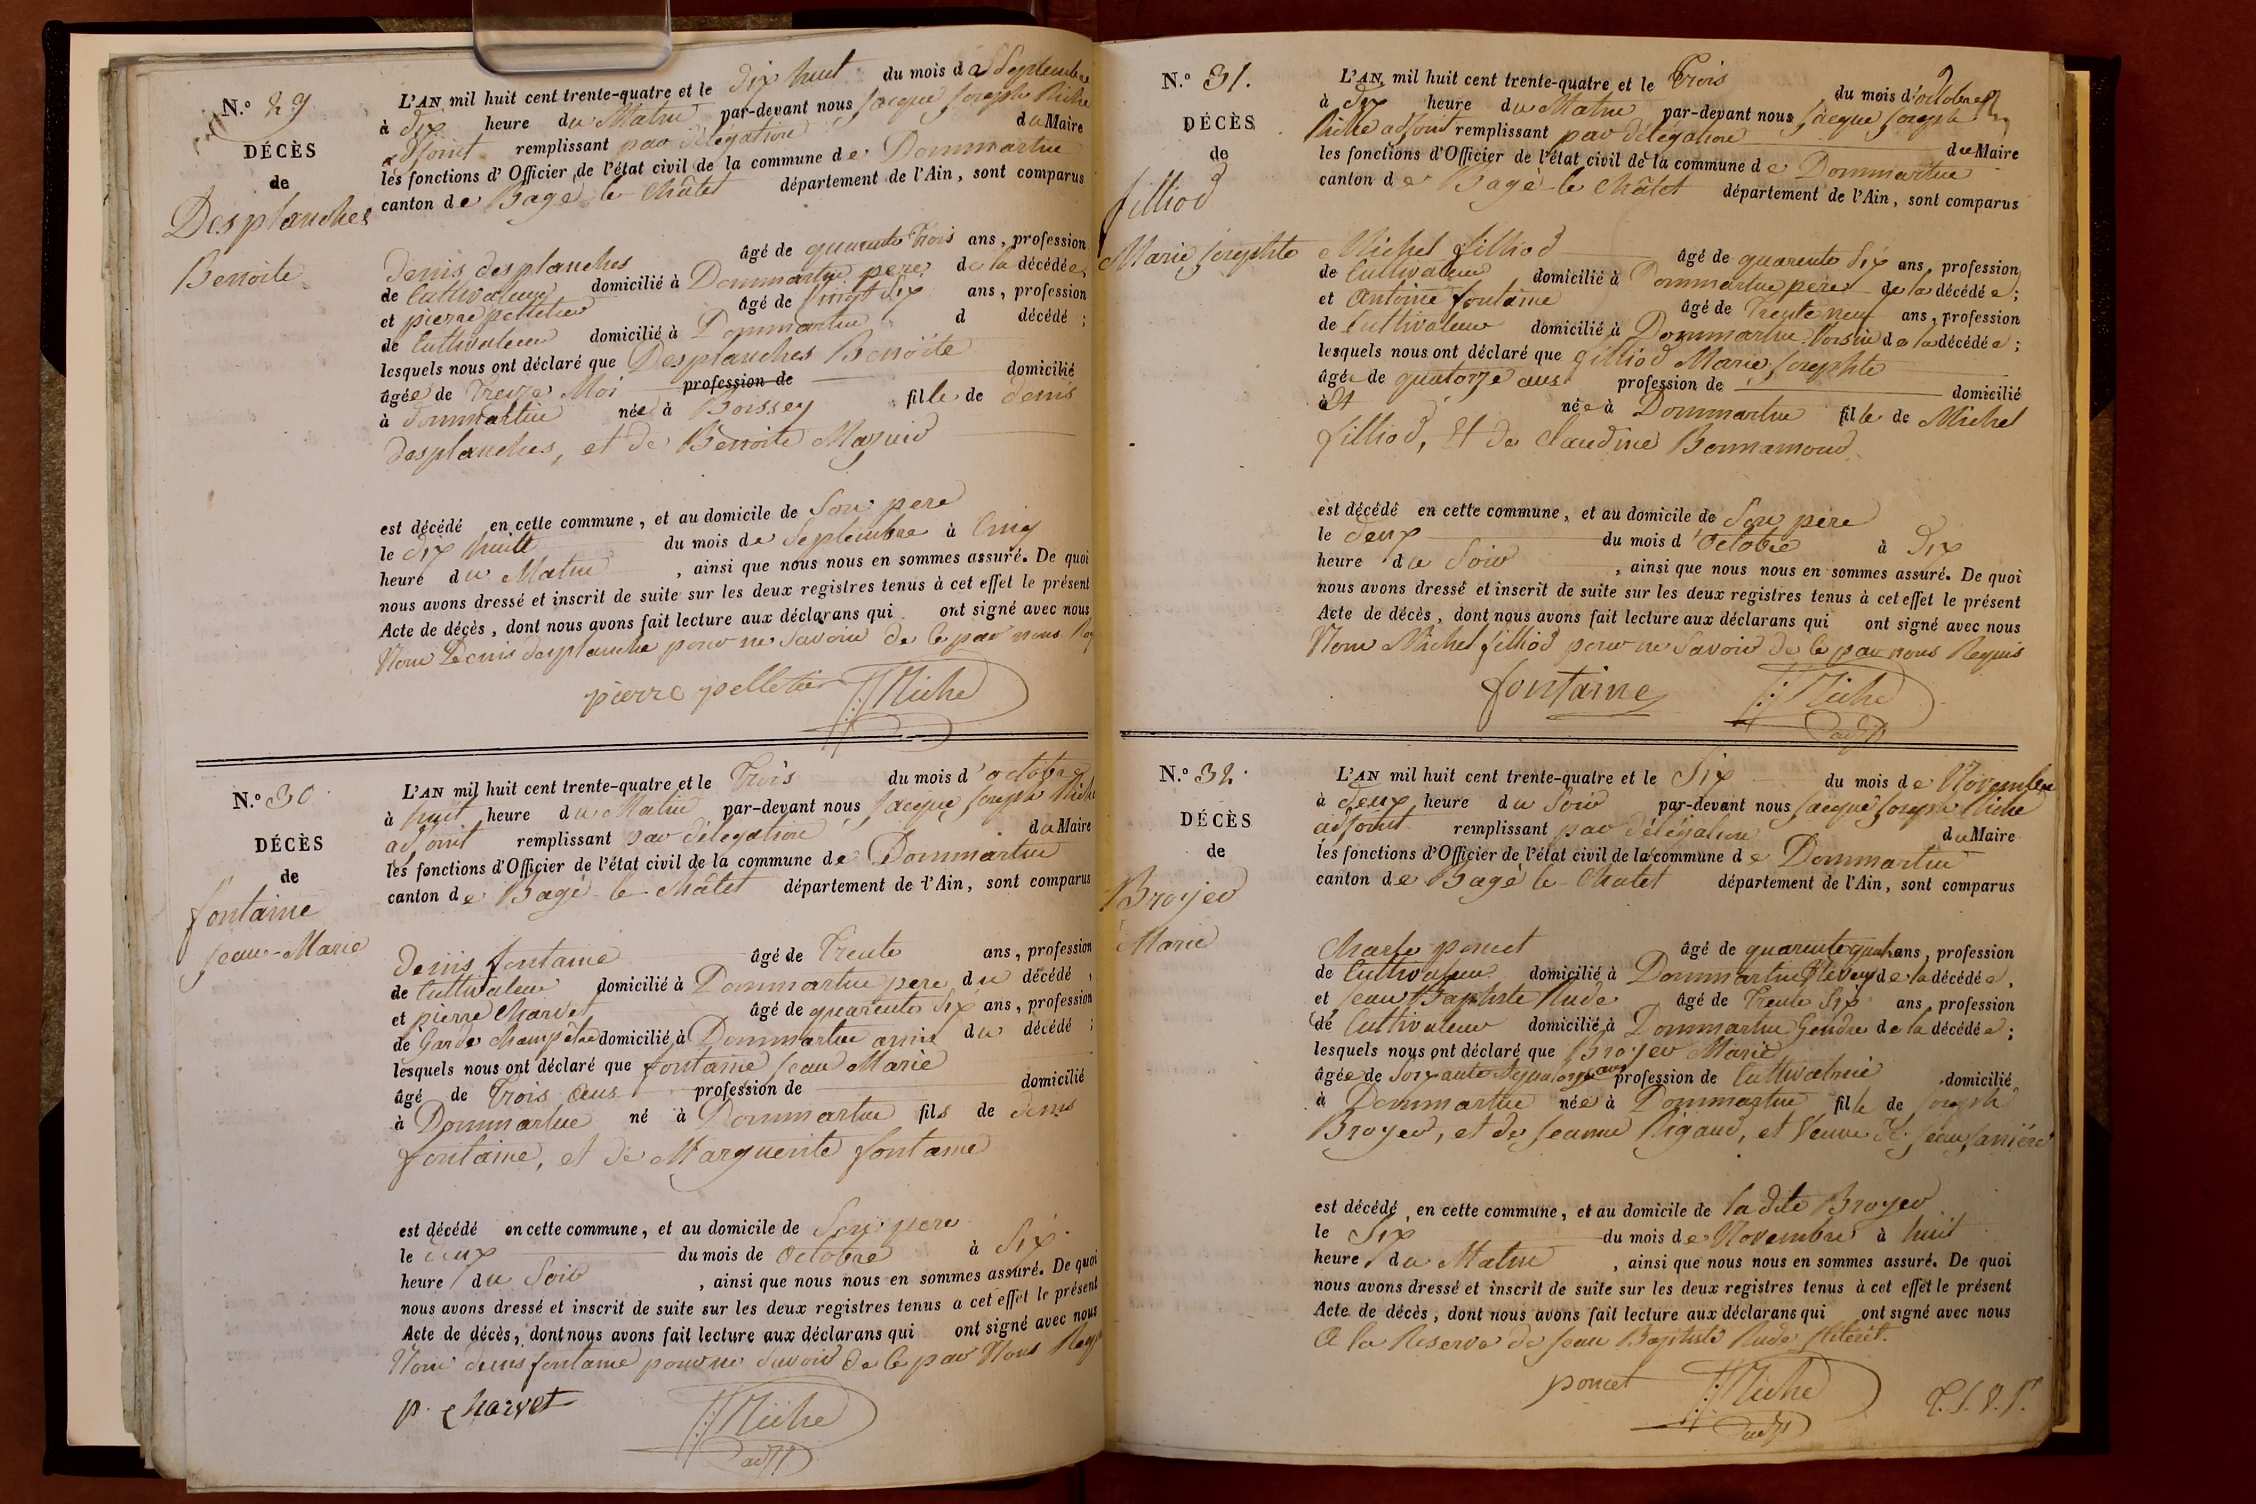 N.o 29
DÉCÈS
de
Desplanches
Benoite
L'AN mil huit cent trente-quatre et le dix huit du mois de Septembre
à dix heure du Matin par-devant nous Jacque Joseph Riche
adjoint remplissant par délégation du Maire
les fonctions d'Officier de l'état civil de la commune de Dommartin
canton de Bagé le Châtel département de l'Ain, sont comparus
denis desplanches âgé de quarente Trois ans, profession
de Cultivateur domicilié à Dommartin pere de la décédée,
et pierre pelletier âgé de vingt dix ans, profession
de Cultivateur domicilié à Dommartin d décédé ;
lesquels nous ont déclaré que Desplanches Benoite
âgée de Treize Moi profession de domicilié
à dommartin née à Boissey fille de denis
desplanches, et de Benoite Mazuid
est décédé en cette commune, et au domicile de Son pere
le dix huitt du mois de Septembre à Cinq
heure du Matin , ainsi que nous nous en sommes assuré. De quoi
nous avons dressé et inscrit de suite sur les deux registres tenus à cet effet le présent
Acte de décès, dont nous avons fait lecture aux déclarans qui ont signé avec nous
Non Denis desplanche pour ne Savoir de Ce par nous Req
pierre pelletier JJ Riche
N.o 30
DÉCÈS
de
fontaine
Jean-Marie
L'AN mil huit cent trente-quatre et le Trois du mois d'octobre
à huit heure du Matin par-devant nous Jacque Joseph Riche
adjoint remplissant par délégation du Maire
les fonctions d'Officier de l'état civil de la commune de Dommartin
canton de Bagé le Châtel département de l'Ain, sont comparus
Denis fontaine âgé de Trente ans, profession
de Cultivateur domicilié à Dommartin pere du décédé ,
et pierre Charvet âgé de quarente Six ans, profession
de Garde Champêtre domicilié à Dommartin amie du décédé ;
lesquels nous ont déclaré que fontaine Jean Marie
âgé de Trois ans profession de domicilié
à Dommartin né à Dommartin fils de denis
fontaine, et de Marguerite fontaine
est décédé en cette commune, et au domicile de Son pere
le deux du mois de Octobre à Six
heure du Soir , ainsi que nous nous en sommes assuré. De quoi
nous avons dressé et inscrit de suite sur les deux registres tenus a cet effet le présent
Acte de décès, dont nous avons fait lecture aux déclarans qui ont signé avec nous
Non denis fontaine pour ne Savoir de Ce par Nous Req
p. Charvet JJ Riche
adjt
N.o 31.
DÉCÈS
de
filliod
Marie Josephte
L'AN mil huit cent trente-quatre et le Trois du mois d'octobre
à dix heure du Matin par-devant nous Jacque Joseph
Riche adjoint remplissant par délégation du Maire
les fonctions d'Officier de l'état civil de la commune de Dommartin
canton de Bagé le Châtel département de l'Ain, sont comparus
Michel filliod âgé de quarente Six ans, profession
de Cultivateur domicilié à Dommartin pere de la décédée ;
et Antoine fontaine âgé de Trente neuf ans, profession
de Cultivateur domicilié à Dommartin Voisin de la décédée ;
lesquels nous ont déclaré que filliod Marie Josephte
âgée de quatorze ans profession de domicilié
à née à Dommartin fille de Michel
filliod, Et de Claudine Bonnamour
est décédé en cette commune, et au domicile de Son pere
le deux du mois d'Octobre à dix
heure du Soir , ainsi que nous nous en sommes assuré. De quoi
nous avons dressé et inscrit de suite sur les deux registres tenus à cet effet le présent
Acte de décès, dont nous avons fait lecture aux déclarans qui ont signé avec nous
Non Michel filliod pour ne Savoir de Ce par nous Requis
fontaine JJ Riche
adjt
N.o 32.
DÉCÈS
de
Broyer
Marie
L'AN mil huit cent trente-quatre et le Six du mois de Novembre
à deux heure du Soir par-devant nous Jacque Joseph Riche
adjoint remplissant par délégation du Maire
les fonctions d'Officier de l'état civil de la commune de Dommartin
canton de Bagé le Chatel département de l'Ain, sont comparus
Charle poncet âgé de quarente quat. ans, profession
de Cultivateur domicilié à Dommartin de la décédée,
et Jean Baptiste Rude âgé de Trente Six ans, profession
de Cultivateur domicilié à Dommartin Gendre de la décédée ;
lesquels nous ont déclaré que Broyer Marie
âgée de Soixante quatorze ans profession de Cultivatrice domicilié
à Dommartin née à Dommartin fille de Joseph
Broyer, et de Jeanne Rigaud, et Veuve de Jean Janiére
est décédé en cette commune, et au domicile de la dite Broyer
le Six du mois de Novembre à huit
heure du Matin , ainsi que nous nous en sommes assuré. De quoi
nous avons dressé et inscrit de suite sur les deux registres tenus à cet effet le présent
Acte de décès, dont nous avons fait lecture aux déclarans qui ont signé avec nous
A la Reserve de Jean Baptiste Rude Illétrét.
poncet JJ Riche
adjt
T.S.V.P.